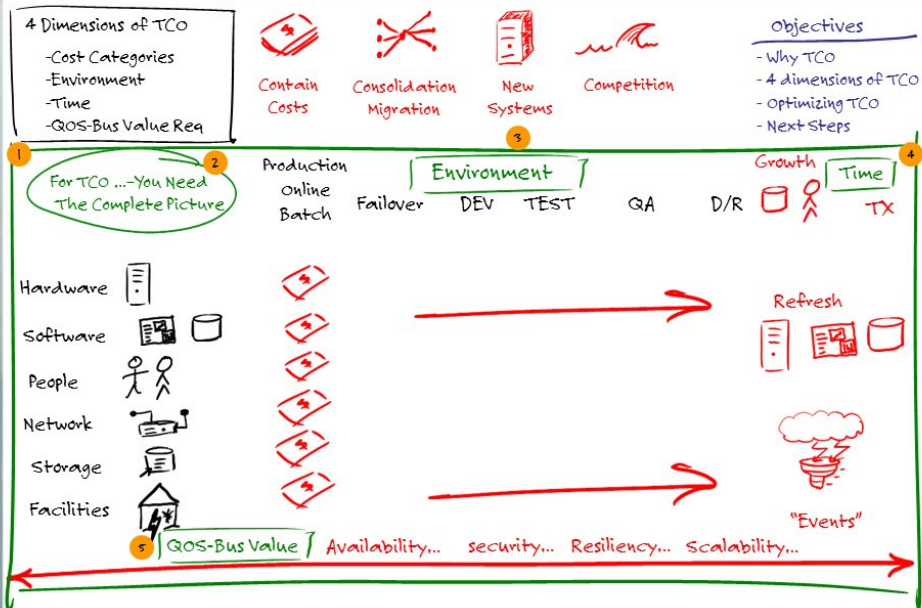 4 Dimensions of TCO
-Cost Categories
-Environment
-Time
-QOS-Bus Value Req
Contain
Costs
Consolidation
Migration
New
Systems
Competition
Objectives
- Why TCO
- 4 dimensions of TCO
- Optimizing TCO
- Next Steps
1
2
3
4
For TCO ...-You Need
The Complete Picture
Production
Online
Batch
Environment
Failover DEV TEST QA D/R
Growth
Time
TX
Hardware
Software
People
Network
Storage
Facilities
$
$
$
$
$
$
$
Refresh
"Events"
5
QOS-Bus Value Availability... security... Resiliency... Scalability...